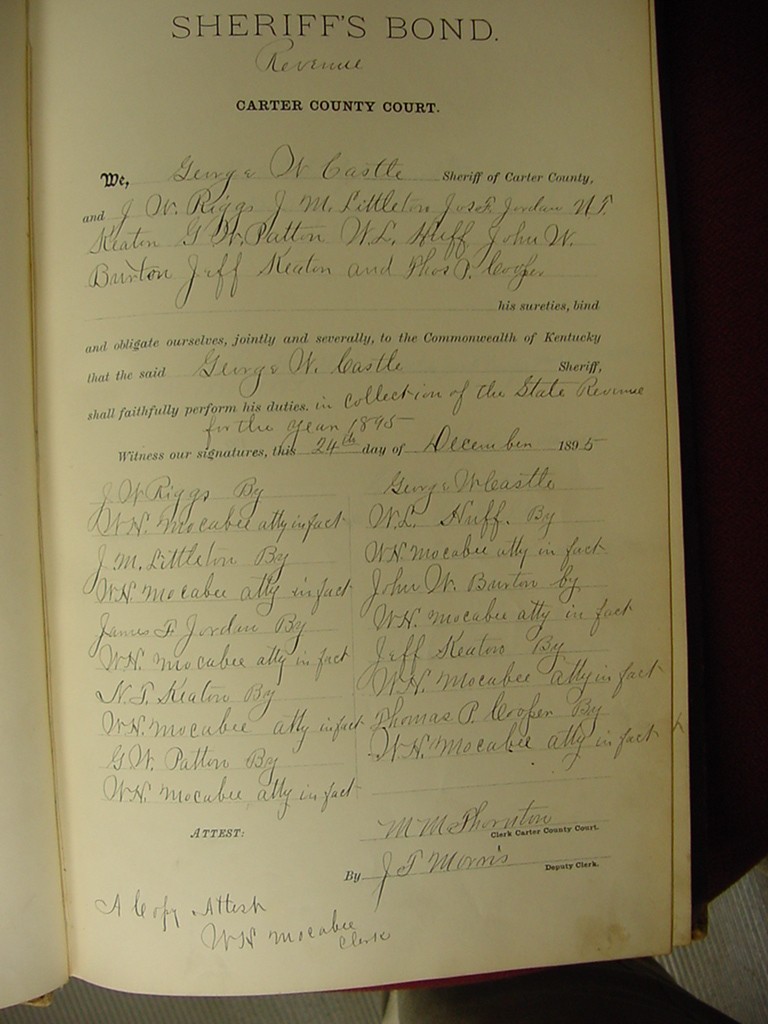 SHERIFF'S BOND.
Revenue
CARTER COUNTY COURT.
We, George W Castle Sheriff of Carter County,
and J W. Riggs J M. Littleton Jas F. Jordan N T.
Keaton G W. Patton W. L. Huff John W.
Burton Jeff Keaton and Thos P. Cooper
his sureties, bind
and obligate ourselves, jointly and severally, to the Commonwealth of Kentucky
that the said George W. Castle Sheriff,
shall faithfully perform his duties. in collection of the State Revenue
for the year 1895
Witness our signatures, this 24th day of December 1895
J W Riggs By
W H. Mocabee atty in fact
J. M. Littleton By
W H Mocabee atty in fact
James F Jordan By
W H. Mocabee atty in fact
N. T. Keaton By
W H. Mocabee atty in fact
G W. Patton By
W H. Mocabee atty in fact
George W Castle
W. L. Huff. By
W H Mocabee atty in fact
John W. Burton by
W H. Mocabee atty in fact
Jeff Keaton By
W. H. Mocabee atty in fact
Thomas P. Cooper By
W. H. Mocabee atty in fact
ATTEST:
M M Thornton
Clerk Carter County Court.
By J T Morris Deputy Clerk.
A Copy Attest
W H Mocabee
Clerk